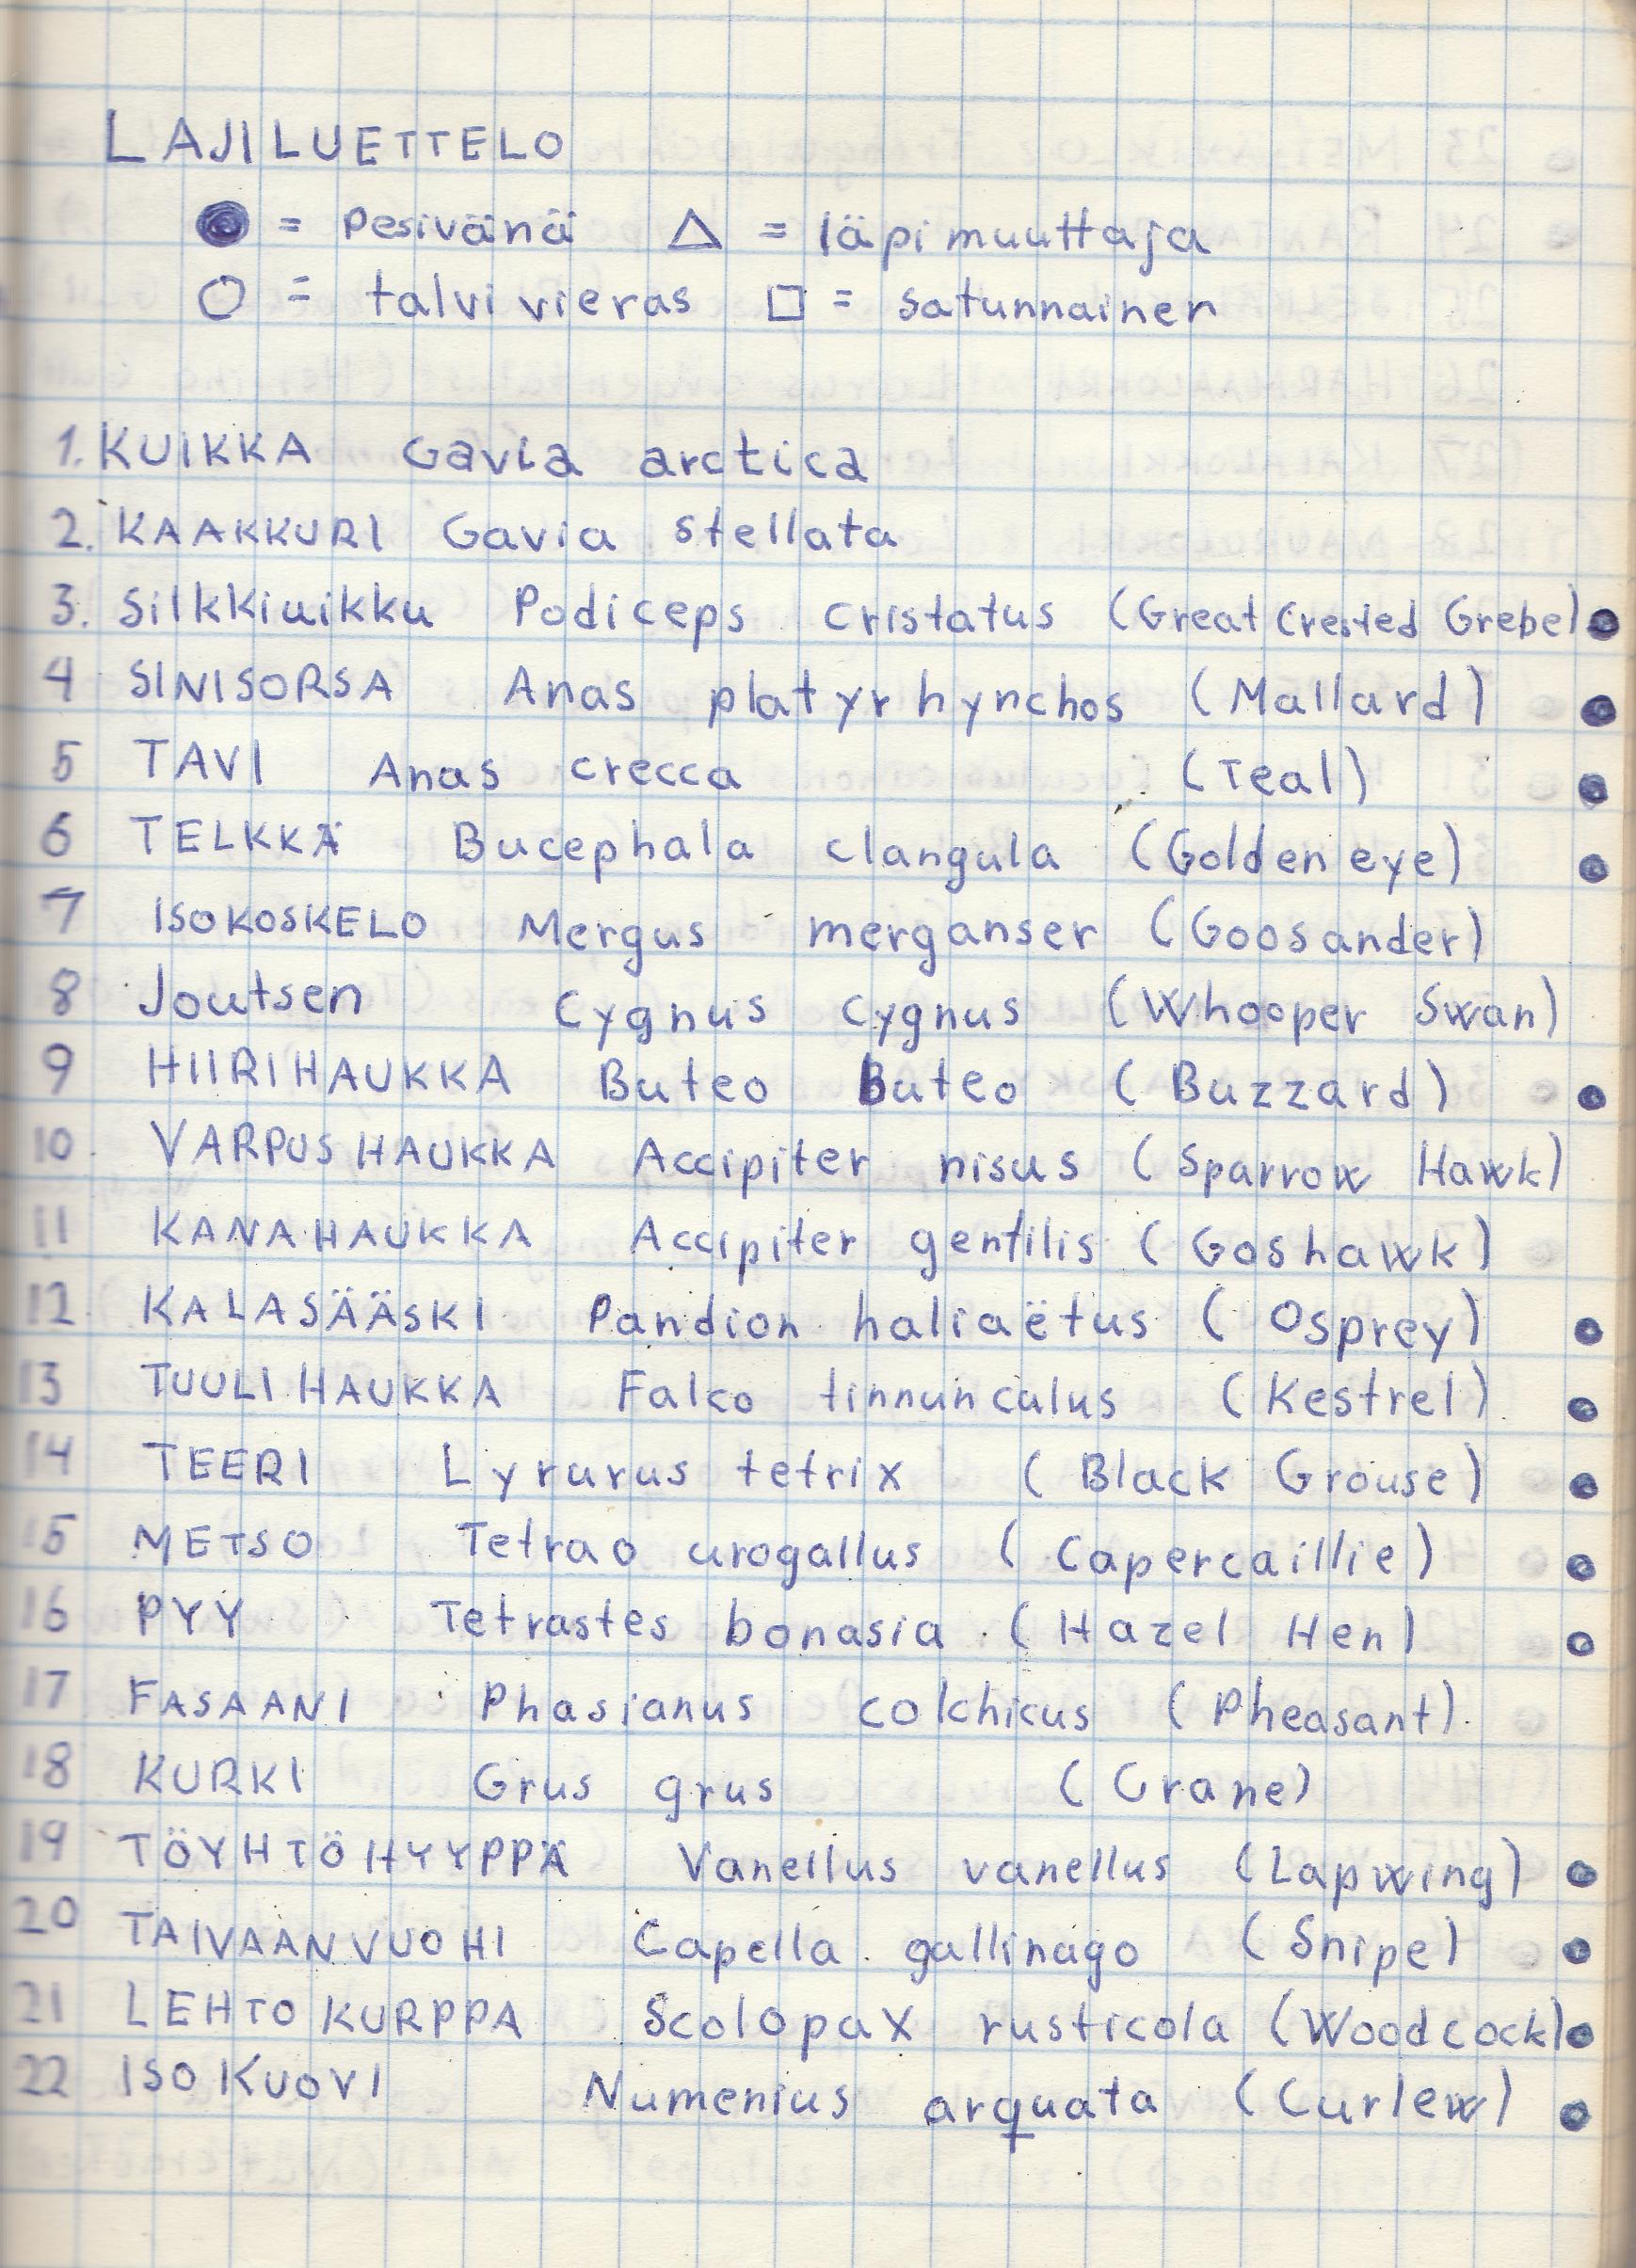 LAJILUETTELO
● = pesivänä △ = läpimuuttaja
○ = talvivieras □ = satunnainen
1. KUIKKA Gavia arctica
2. KAAKKURI Gavia stellata
3. Silkkiuikku Podiceps cristatus (Great Crested Grebe) ●
4 SINISORSA Anas platyrhynchos (Mallard) ●
5 TAVI Anas crecca (Teal) ●
6 TELKKÄ Bucephala clangula (Goldeneye) ●
7 ISOKOSKELO Mergus merganser (Goosander)
8 Joutsen Cygnus cygnus (Whooper Swan)
9 HIIRIHAUKKA Buteo Buteo (Buzzard) ●
10 VARPUSHAUKKA Accipiter nisus (Sparrow Hawk)
11 KANAHAUKKA Accipiter gentilis (Goshawk)
12 KALASÄÄSKI Pandion haliaëtus (Osprey) ●
13 TUULIHAUKKA Falco tinnunculus (Kestrel) ●
14 TEERI Lyrurus tetrix (Black Grouse) ●
15 METSO Tetrao urogallus (Capercaillie) ●
16 PYY Tetrastes bonasia (Hazel Hen) ●
17 FASAANI Phasianus colchicus (Pheasant).
18 KURKI Grus grus (Crane)
19 TÖYHTÖHYYPPÄ Vanellus vanellus (Lapwing) ●
20 TAIVAANVUOHI Capella gallinago (Snipe) ●
21 LEHTOKURPPA Scolopax rusticola (Woodcock) ●
22 ISOKUOVI Numenius arquata (Curlew) ●